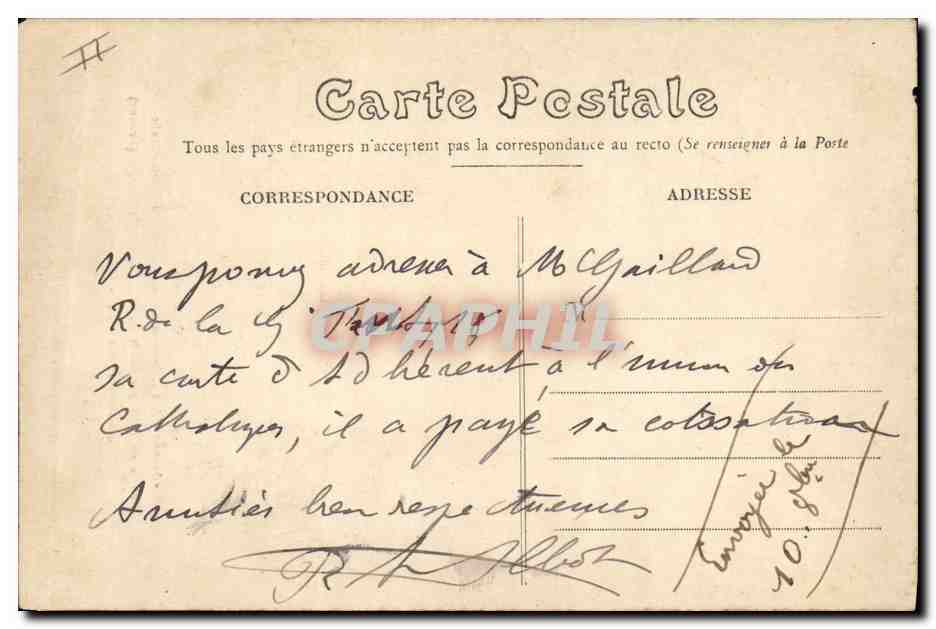 Carte Postale
Tous les pays étrangers n'acceptent pas la correspondance au recto (Se renseigner à la Poste
CORRESPONDANCE
ADRESSE
Vous pouvez adresser à Mr Gaillard
R. de la
CPAPHIL
sa carte d'Adhérent à l'union des
Catholiques, il a payé sa cotisation
Amitiés bien respectueuses
Envoyée le
10